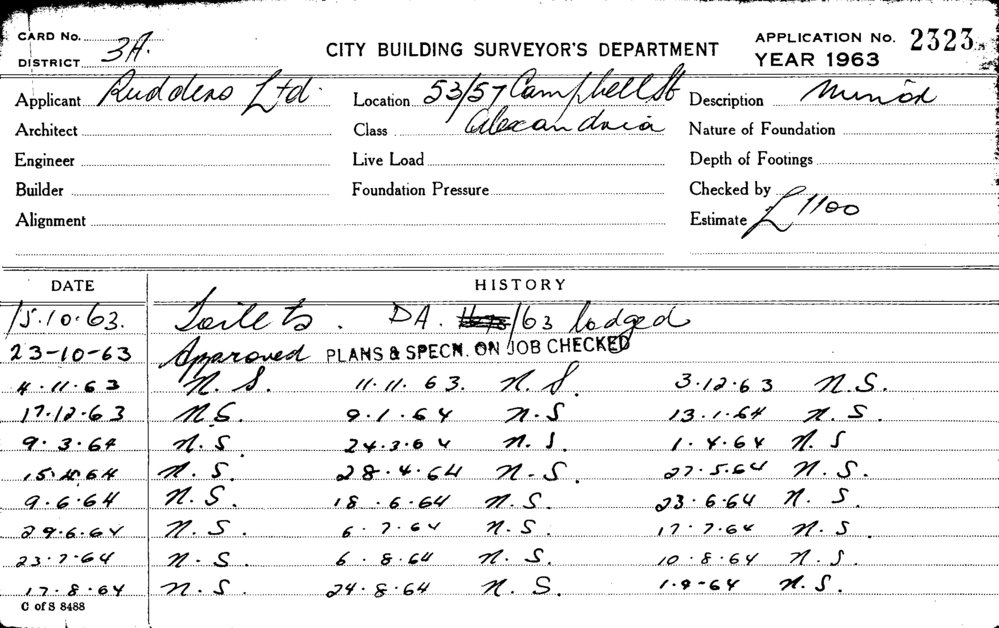 CARD No.
DISTRICT 3A.
CITY BUILDING SURVEYOR'S DEPARTMENT
APPLICATION No. 2323
YEAR 1963
Applicant Rudders Ltd. Location 53/57 Campbell St Description Minor
Architect Class Alexandria Nature of Foundation
Engineer Live Load Depth of Footings
Builder Foundation Pressure Checked by
Alignment Estimate £1100
DATE HISTORY
15.10.63. Toilets. DA. /63 lodged
23-10-63 Approved PLANS & SPECN. ON JOB CHECKED
4.11.63 N.S. 11.11.63. N.S. 3.12.63 N.S.
17.12.63 N.S. 9.1.64 N.S 13.1.64 N.S.
9.3.64 N.S. 24.3.64 N.S. 1.4.64 N.S
15.4.64 N.S. 28.4.64 N.S. 27.5.64 N.S.
9.6.64 N.S. 18.6.64 N.S. 23.6.64 N.S.
29.6.64 N.S. 6.7.64 N.S. 17.7.64 N.S
23.7.64 N.S. 6.8.64 N.S. 10.8.64 N.S.
17.8.64 N.S. 24.8.64 N.S. 1.9-64 N.S.
C of S 8488